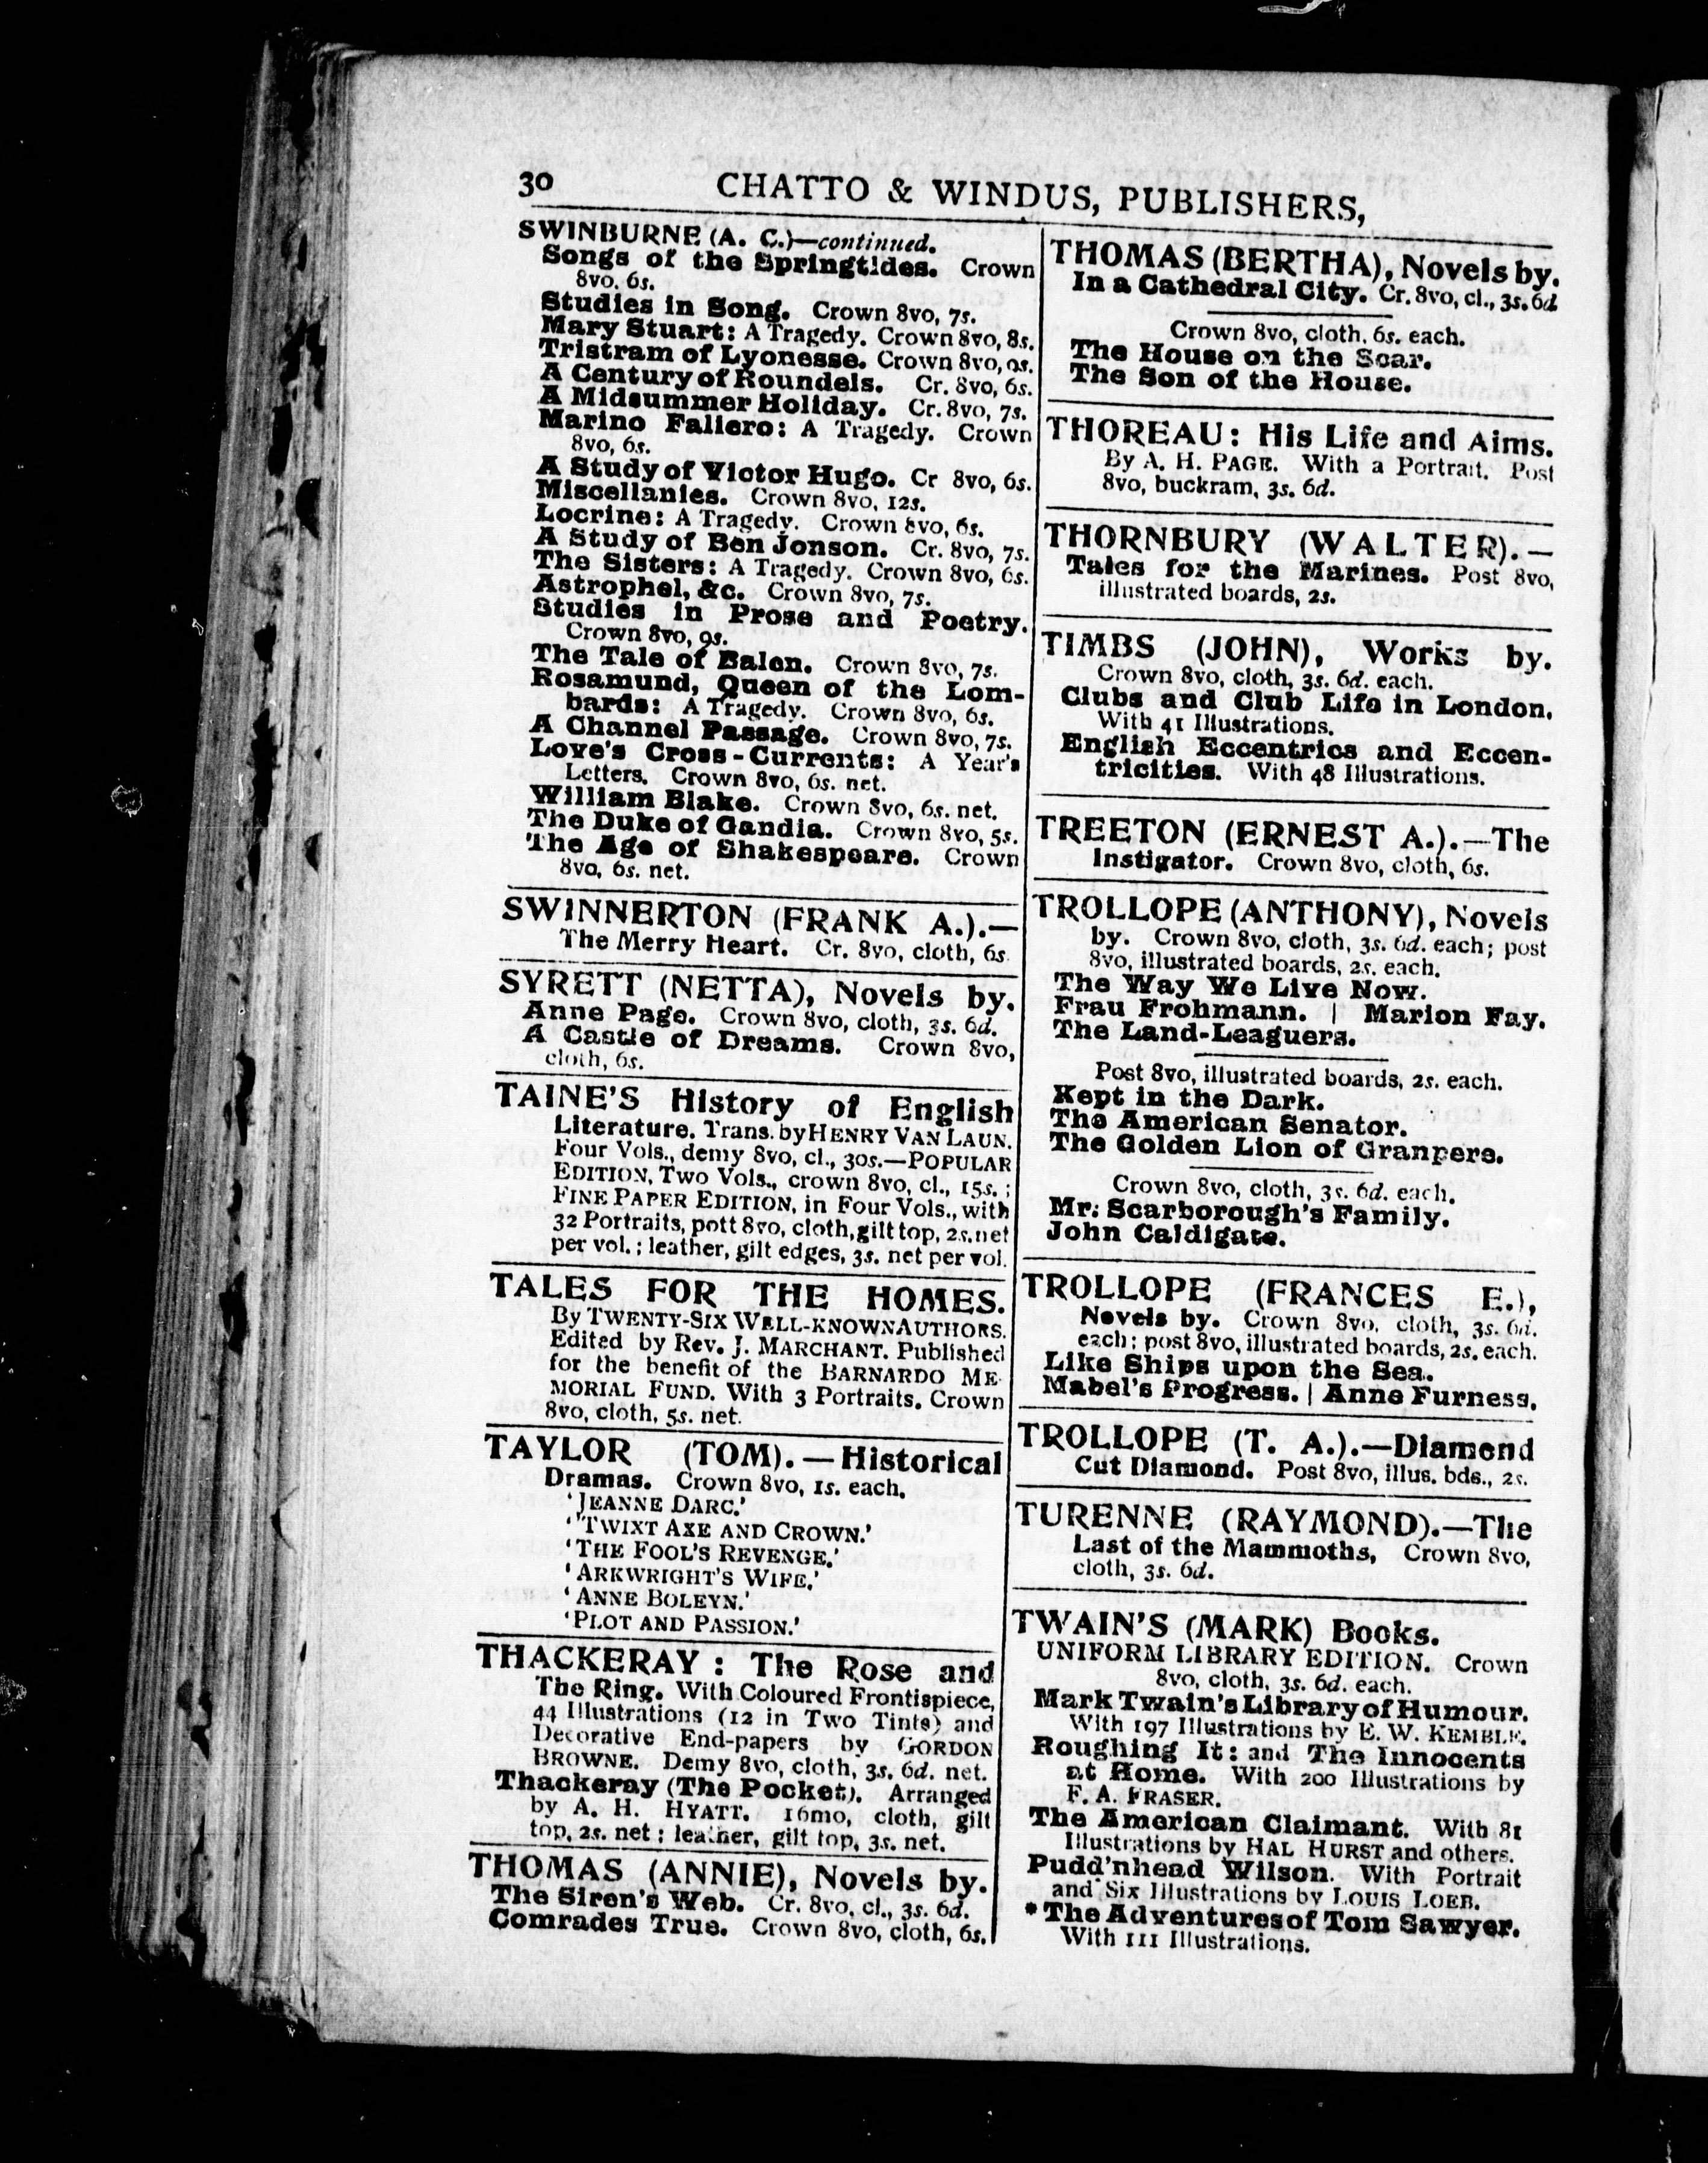 30
CHATTO & WINDUS, PUBLISHERS,
SWINBURNE (A. C.)—continued.
Songs of the Springtides. Crown
8vo, 6s.
Studies in Song. Crown 8vo, 7s.
Mary Stuart: A Tragedy. Crown 8vo, 8s.
Tristram of Lyonesse. Crown 8vo, 9s.
A Century of Roundels. Cr. 8vo, 6s.
A Midsummer Holiday. Cr. 8vo, 7s.
Marino Faliero: A Tragedy. Crown
8vo, 6s.
A Study of Victor Hugo. Cr 8vo, 6s.
Miscellanies. Crown 8vo, 12s.
Locrine: A Tragedy. Crown 8vo, 6s.
A Study of Ben Jonson. Cr. 8vo, 7s.
The Sisters: A Tragedy. Crown 8vo, 6s.
Astrophel, &c. Crown 8vo, 7s.
Studies in Prose and Poetry.
Crown 8vo, 9s.
The Tale of Balen. Crown 8vo, 7s.
Rosamund, Queen of the Lom-
bards: A Tragedy. Crown 8vo, 6s.
A Channel Passage. Crown 8vo, 7s.
Love's Cross-Currents: A Year's
Letters. Crown 8vo, 6s. net.
William Blake. Crown 8vo, 6s. net.
The Duke of Gandia. Crown 8vo, 5s.
The Age of Shakespeare. Crown
8vo, 6s. net.
SWINNERTON (FRANK A.).—
The Merry Heart. Cr. 8vo, cloth, 6s.
SYRETT (NETTA), Novels by.
Anne Page. Crown 8vo, cloth, 3s. 6d.
A Castle of Dreams. Crown 8vo,
cloth, 6s.
TAINE'S History of English
Literature. Trans. by HENRY VAN LAUN.
Four Vols., demy 8vo, cl., 30s.—POPULAR
EDITION, Two Vols., crown 8vo, cl., 15s.;
FINE PAPER EDITION, in Four Vols., with
32 Portraits, pott 8vo, cloth, gilt top, 2s. net
per vol.; leather, gilt edges, 3s. net per vol.
TALES FOR THE HOMES.
By TWENTY-SIX WELL-KNOWN AUTHORS.
Edited by Rev. J. MARCHANT. Published
for the benefit of the BARNARDO ME-
MORIAL FUND. With 3 Portraits. Crown
8vo, cloth, 5s. net.
TAYLOR (TOM).—Historical
Dramas. Crown 8vo, 1s. each.
'JEANNE DARC.'
''TWIXT AXE AND CROWN.'
'THE FOOL'S REVENGE.'
'ARKWRIGHT'S WIFE.'
'ANNE BOLEYN.'
'PLOT AND PASSION.'
THACKERAY: The Rose and
The Ring. With Coloured Frontispiece,
44 Illustrations (12 in Two Tints) and
Decorative End-papers by GORDON
BROWNE. Demy 8vo, cloth, 3s. 6d. net.
Thackeray (The Pocket). Arranged
by A. H. HYATT. 16mo, cloth, gilt
top, 2s. net; leather, gilt top, 3s. net.
THOMAS (ANNIE), Novels by.
The Siren's Web. Cr. 8vo, cl., 3s. 6d.
Comrades True. Crown 8vo, cloth, 6s.
THOMAS (BERTHA), Novels by.
In a Cathedral City. Cr. 8vo, cl., 3s. 6d.
Crown 8vo, cloth, 6s. each.
The House on the Scar.
The Son of the House.
THOREAU: His Life and Aims.
By A. H. PAGE. With a Portrait. Post
8vo, buckram, 3s. 6d.
THORNBURY (WALTER).—
Tales for the Marines. Post 8vo,
illustrated boards, 2s.
TIMBS (JOHN), Works by.
Crown 8vo, cloth, 3s. 6d. each.
Clubs and Club Life in London.
With 41 Illustrations.
English Eccentrics and Eccen-
tricities. With 48 Illustrations.
TREETON (ERNEST A.).—The
Instigator. Crown 8vo, cloth, 6s.
TROLLOPE (ANTHONY), Novels
by. Crown 8vo, cloth, 3s. 6d. each; post
8vo, illustrated boards, 2s. each.
The Way We Live Now.
Frau Frohmann. | Marion Fay.
The Land-Leaguers.
Post 8vo, illustrated boards, 2s. each.
Kept in the Dark.
The American Senator.
The Golden Lion of Granpere.
Crown 8vo, cloth, 3s. 6d. each.
Mr. Scarborough's Family.
John Caldigate.
TROLLOPE (FRANCES E.),
Novels by. Crown 8vo, cloth, 3s. 6d.
each; post 8vo, illustrated boards, 2s. each.
Like Ships upon the Sea.
Mabel's Progress. | Anne Furness.
TROLLOPE (T. A.).—Diamond
Cut Diamond. Post 8vo, illus. bds., 2s.
TURENNE (RAYMOND).—The
Last of the Mammoths. Crown 8vo,
cloth, 3s. 6d.
TWAIN'S (MARK) Books.
UNIFORM LIBRARY EDITION. Crown
8vo, cloth, 3s. 6d. each.
Mark Twain's Library of Humour.
With 197 Illustrations by E. W. KEMBLE.
Roughing It: and The Innocents
at Home. With 200 Illustrations by
F. A. FRASER.
The American Claimant. With 81
Illustrations by HAL HURST and others.
Pudd'nhead Wilson. With Portrait
and Six Illustrations by LOUIS LOEB.
*The Adventures of Tom Sawyer.
With 111 Illustrations.